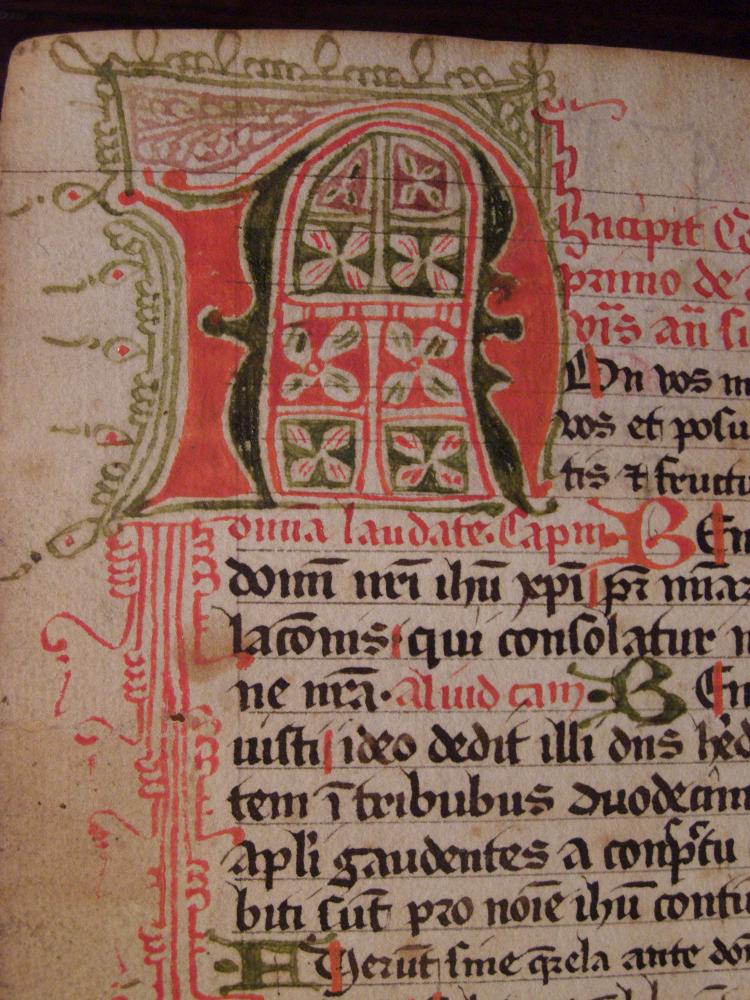 Incipit Co
primo de
vīs añ si
N
On vos m
vos et posu
tis ⁊ fructu
omīa laudate. Capm̄ BEn
domī nr̄i ihū xp̄i pr̄ mīar
lacōnis qui consolatur n
ne nr̄a. Aliud cap̄m. BEn
uisti ideo dedit illi dn̄s hēd
tem ī tribubus duodecim
Apl̄i gaudentes a consp̄ctu
biti sūt pro noīe ihū contu
FUerūt sine q̄rela ante dom